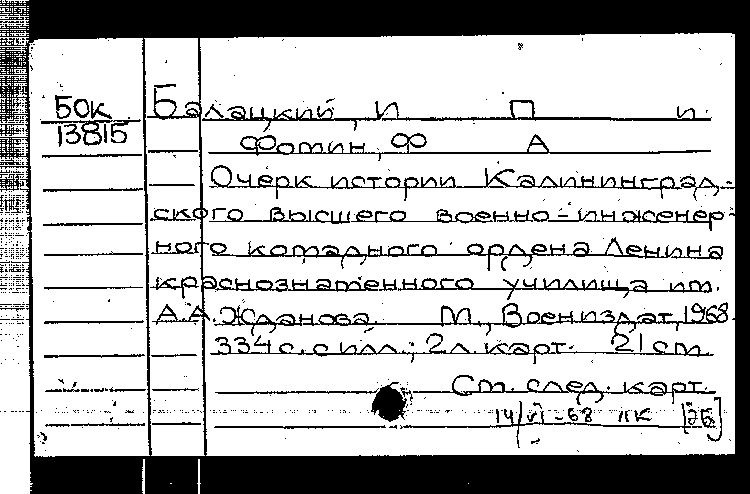 БОК Балацкий, И П и
13815 Фотин, Ф А
Очерк истории Калининград-
ского высшего военно-инженер-
ного командного ордена Ленина
краснознаменного училища им.
А.А. Жданова. М., Воениздат, 1968.
334 с. с илл.; 2 л. карт. 21 см.
См. след. карт.
14/VI-68